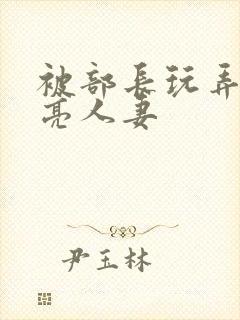 被部長玩弄
亮人妻
尹玉林